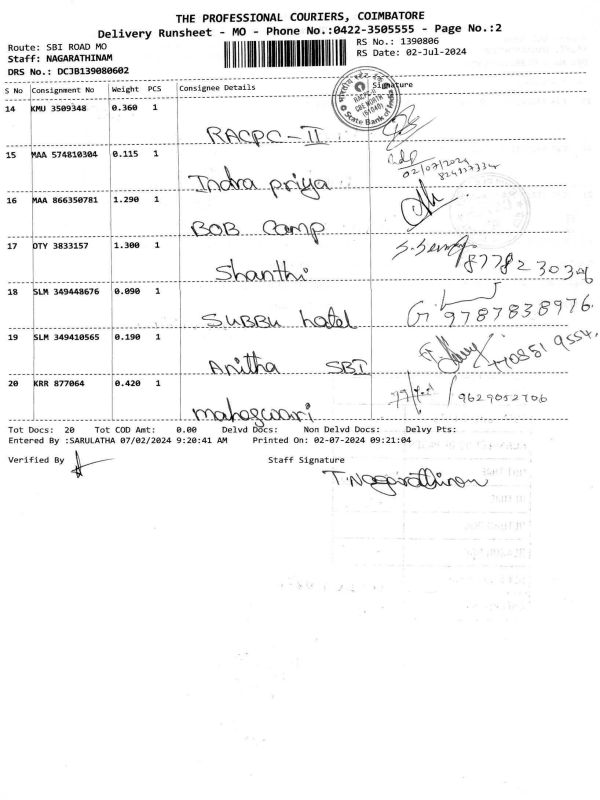 THE PROFESSIONAL COURIERS, COIMBATORE
Delivery Runsheet - MO - Phone No.:0422-3505555 - Page No.:2
Route: SBI ROAD MO
RS No.: 1390806
Staff: NAGARATHINAM
RS Date: 02-Jul-2024
DRS No.: DCJB139080602
S No Consignment No Weight PCS Consignee Details Signature
14 KMU 3509348 0.360 1
RACPC-II
15 MAA 574810304 0.115 1
02/07/2024
Indra priya
16 MAA 866350781 1.290 1
BOB Camp
17 DTY 3833157 1.300 1
8778230306
Shanthi
18 SLM 349448676 0.090 1
9787838976
SUBBU hotel
19 SLM 349410565 0.190 1
Anitha SBI
20 KRR 877064 0.420 1
9629052706
maheswari
Tot Docs: 20 Tot COD Amt: 0.00 Delvd Docs: Non Delvd Docs: Delvy Pts:
Entered By :SARULATHA 07/02/2024 9:20:41 AM Printed On: 02-07-2024 09:21:04
Verified By Staff Signature
T. Nagarathinam